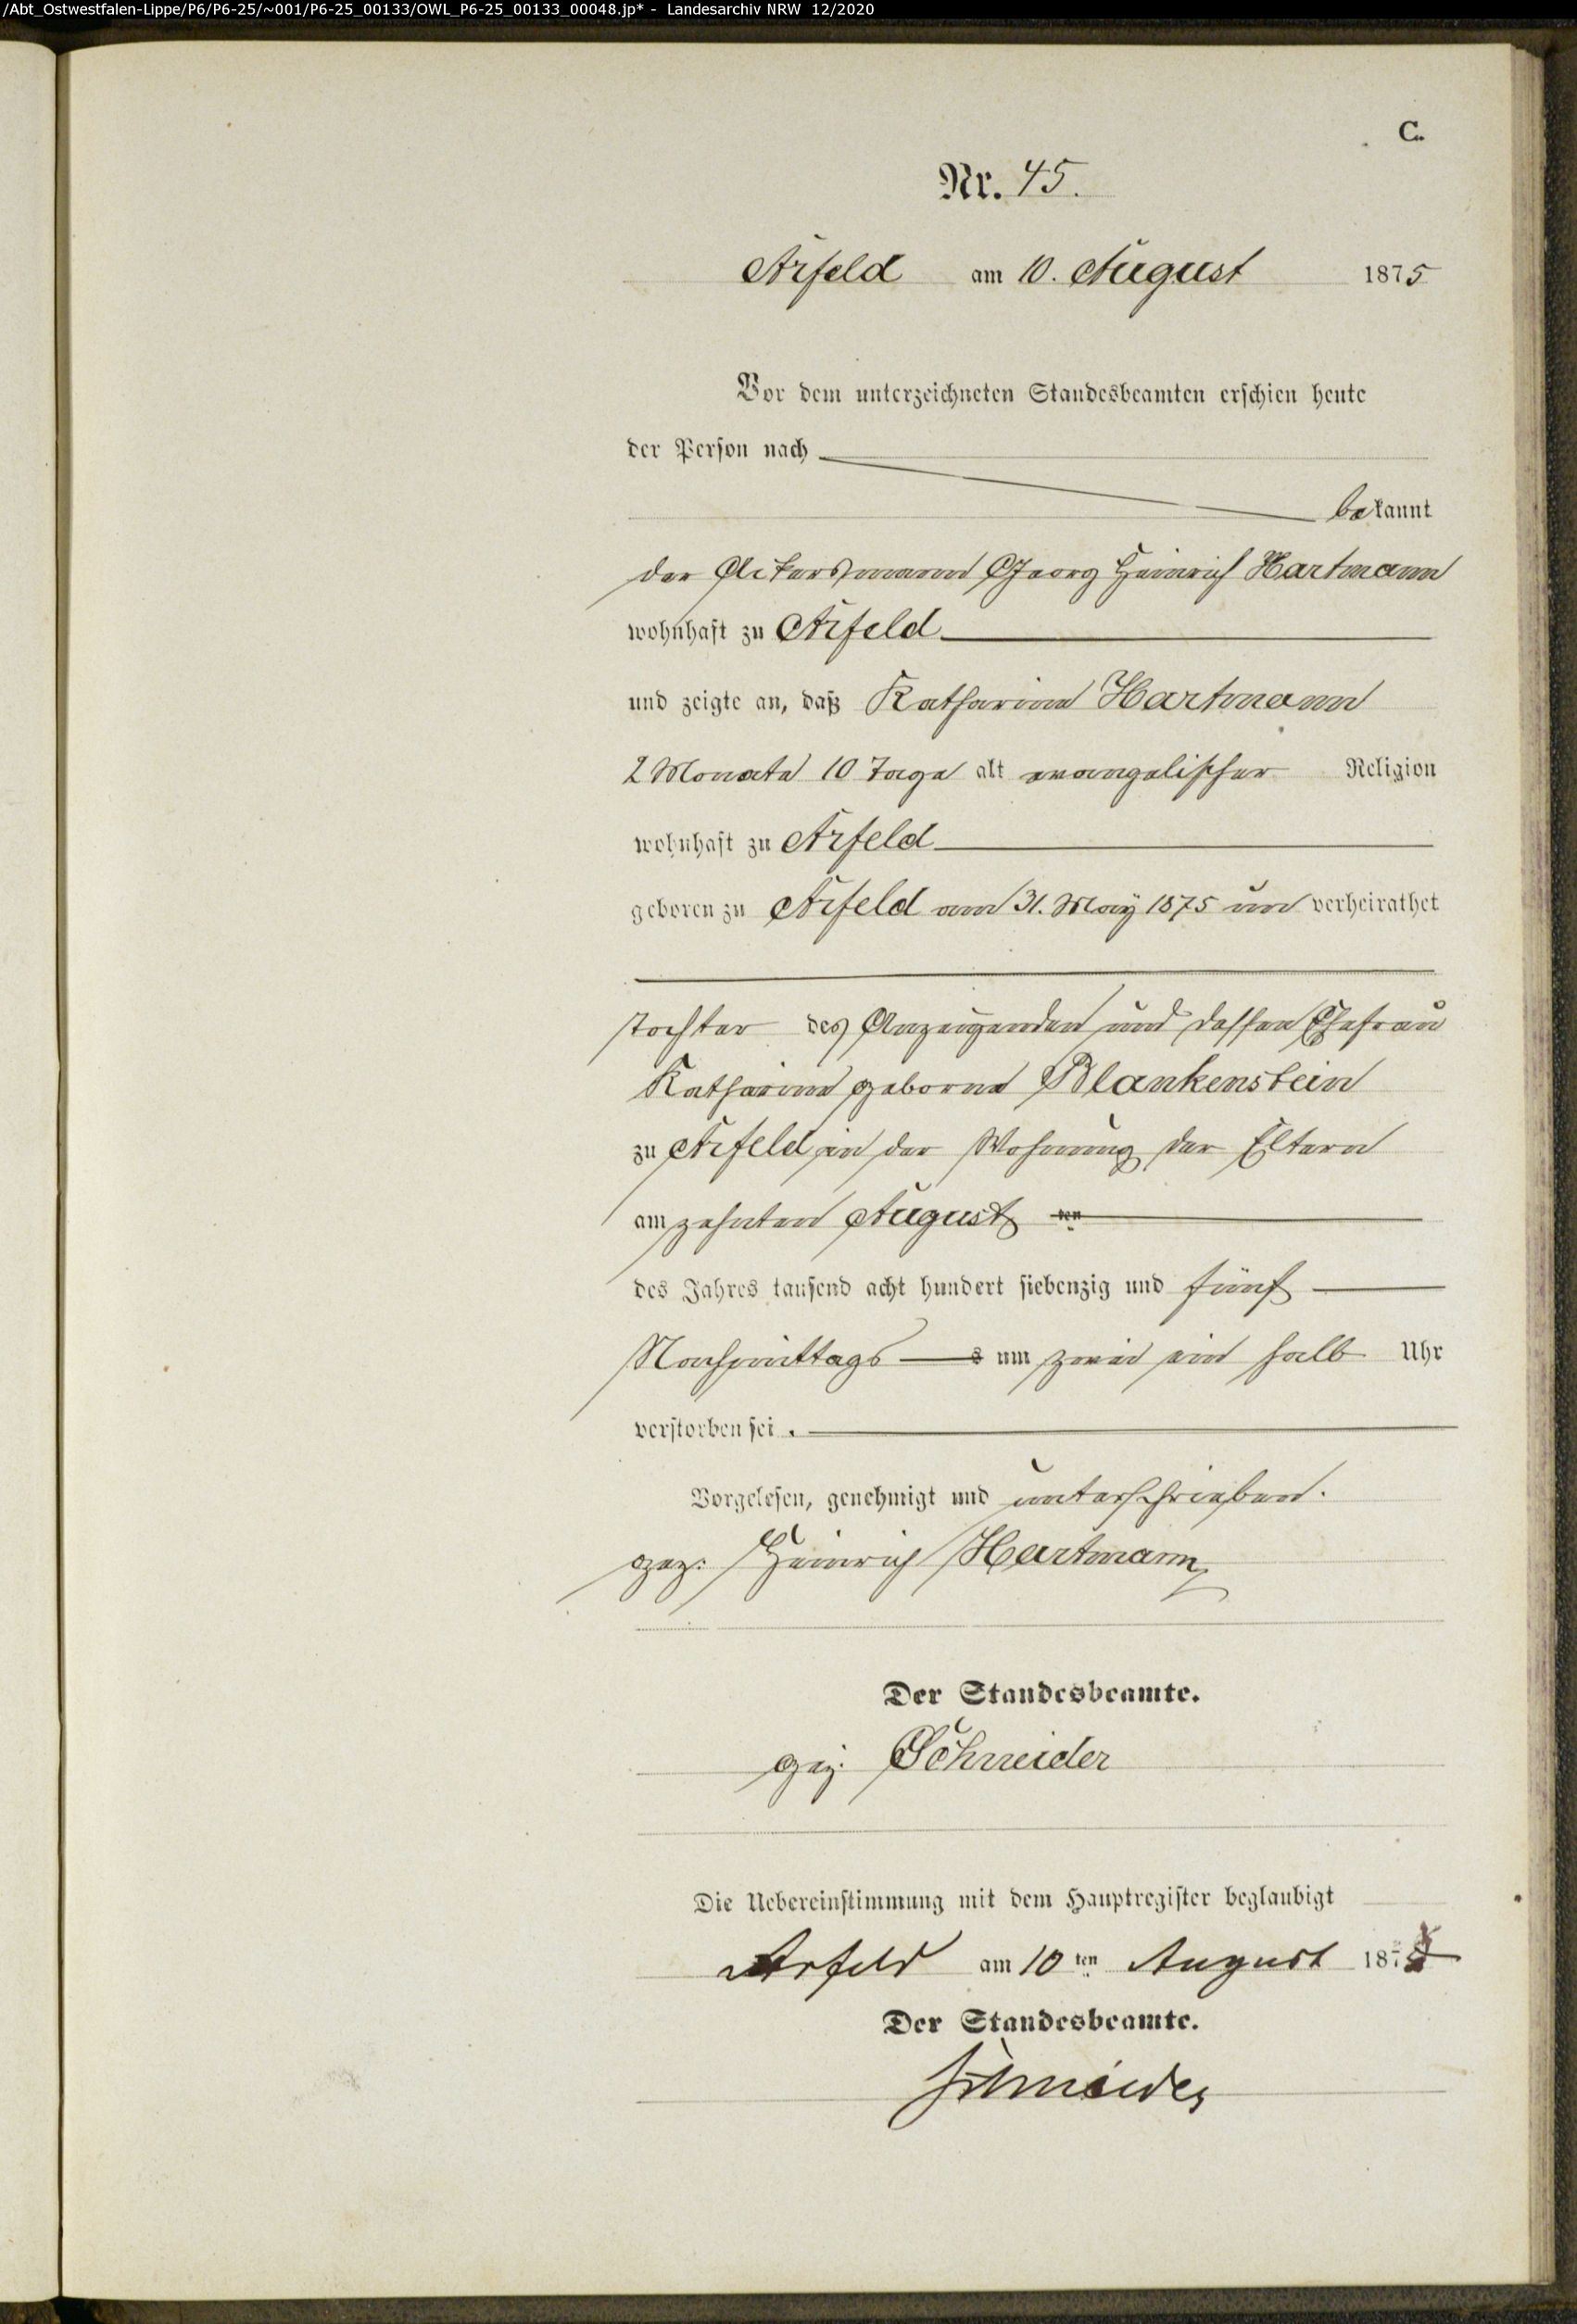 /Abt_Ostwestfalen-Lippe/P6/P6-25/~001/P6-25_00133/OWL_P6-25_00133_00048.jp* - Landesarchiv NRW 12/2020
C.
Nr. 45.
Arfeld am 10. August 1875
Vor dem unterzeichneten Standesbeamten erschien heute
der Person nach
bekannt
der Ackersmann Georg Heinrich Hartmann
wohnhaft zu Arfeld
und zeigte an, daß Katharine Hartmann
2 Monate 10 Tage alt evangelischer Religion
wohnhaft zu Arfeld
geboren zu Arfeld am 31. May 1875 un verheirathet
Tochter des Anzeigenden und dessen Ehefrau
Katharine geborne Blankenstein
zu Arfeld in der Wohnung der Eltern
am zehnten August ten
des Jahres tausend acht hundert siebenzig und fünf
Nachmittags s um zwei ein halb Uhr
verstorben sei.
Vorgelesen, genehmigt und unterschrieben.
gez. Heinrich Hartmann
Der Standesbeamte.
gez. Schneider
Die Uebereinstimmung mit dem Hauptregister beglaubigt
Arfeld am 10ten August 1875
Der Standesbeamte.
Schneider